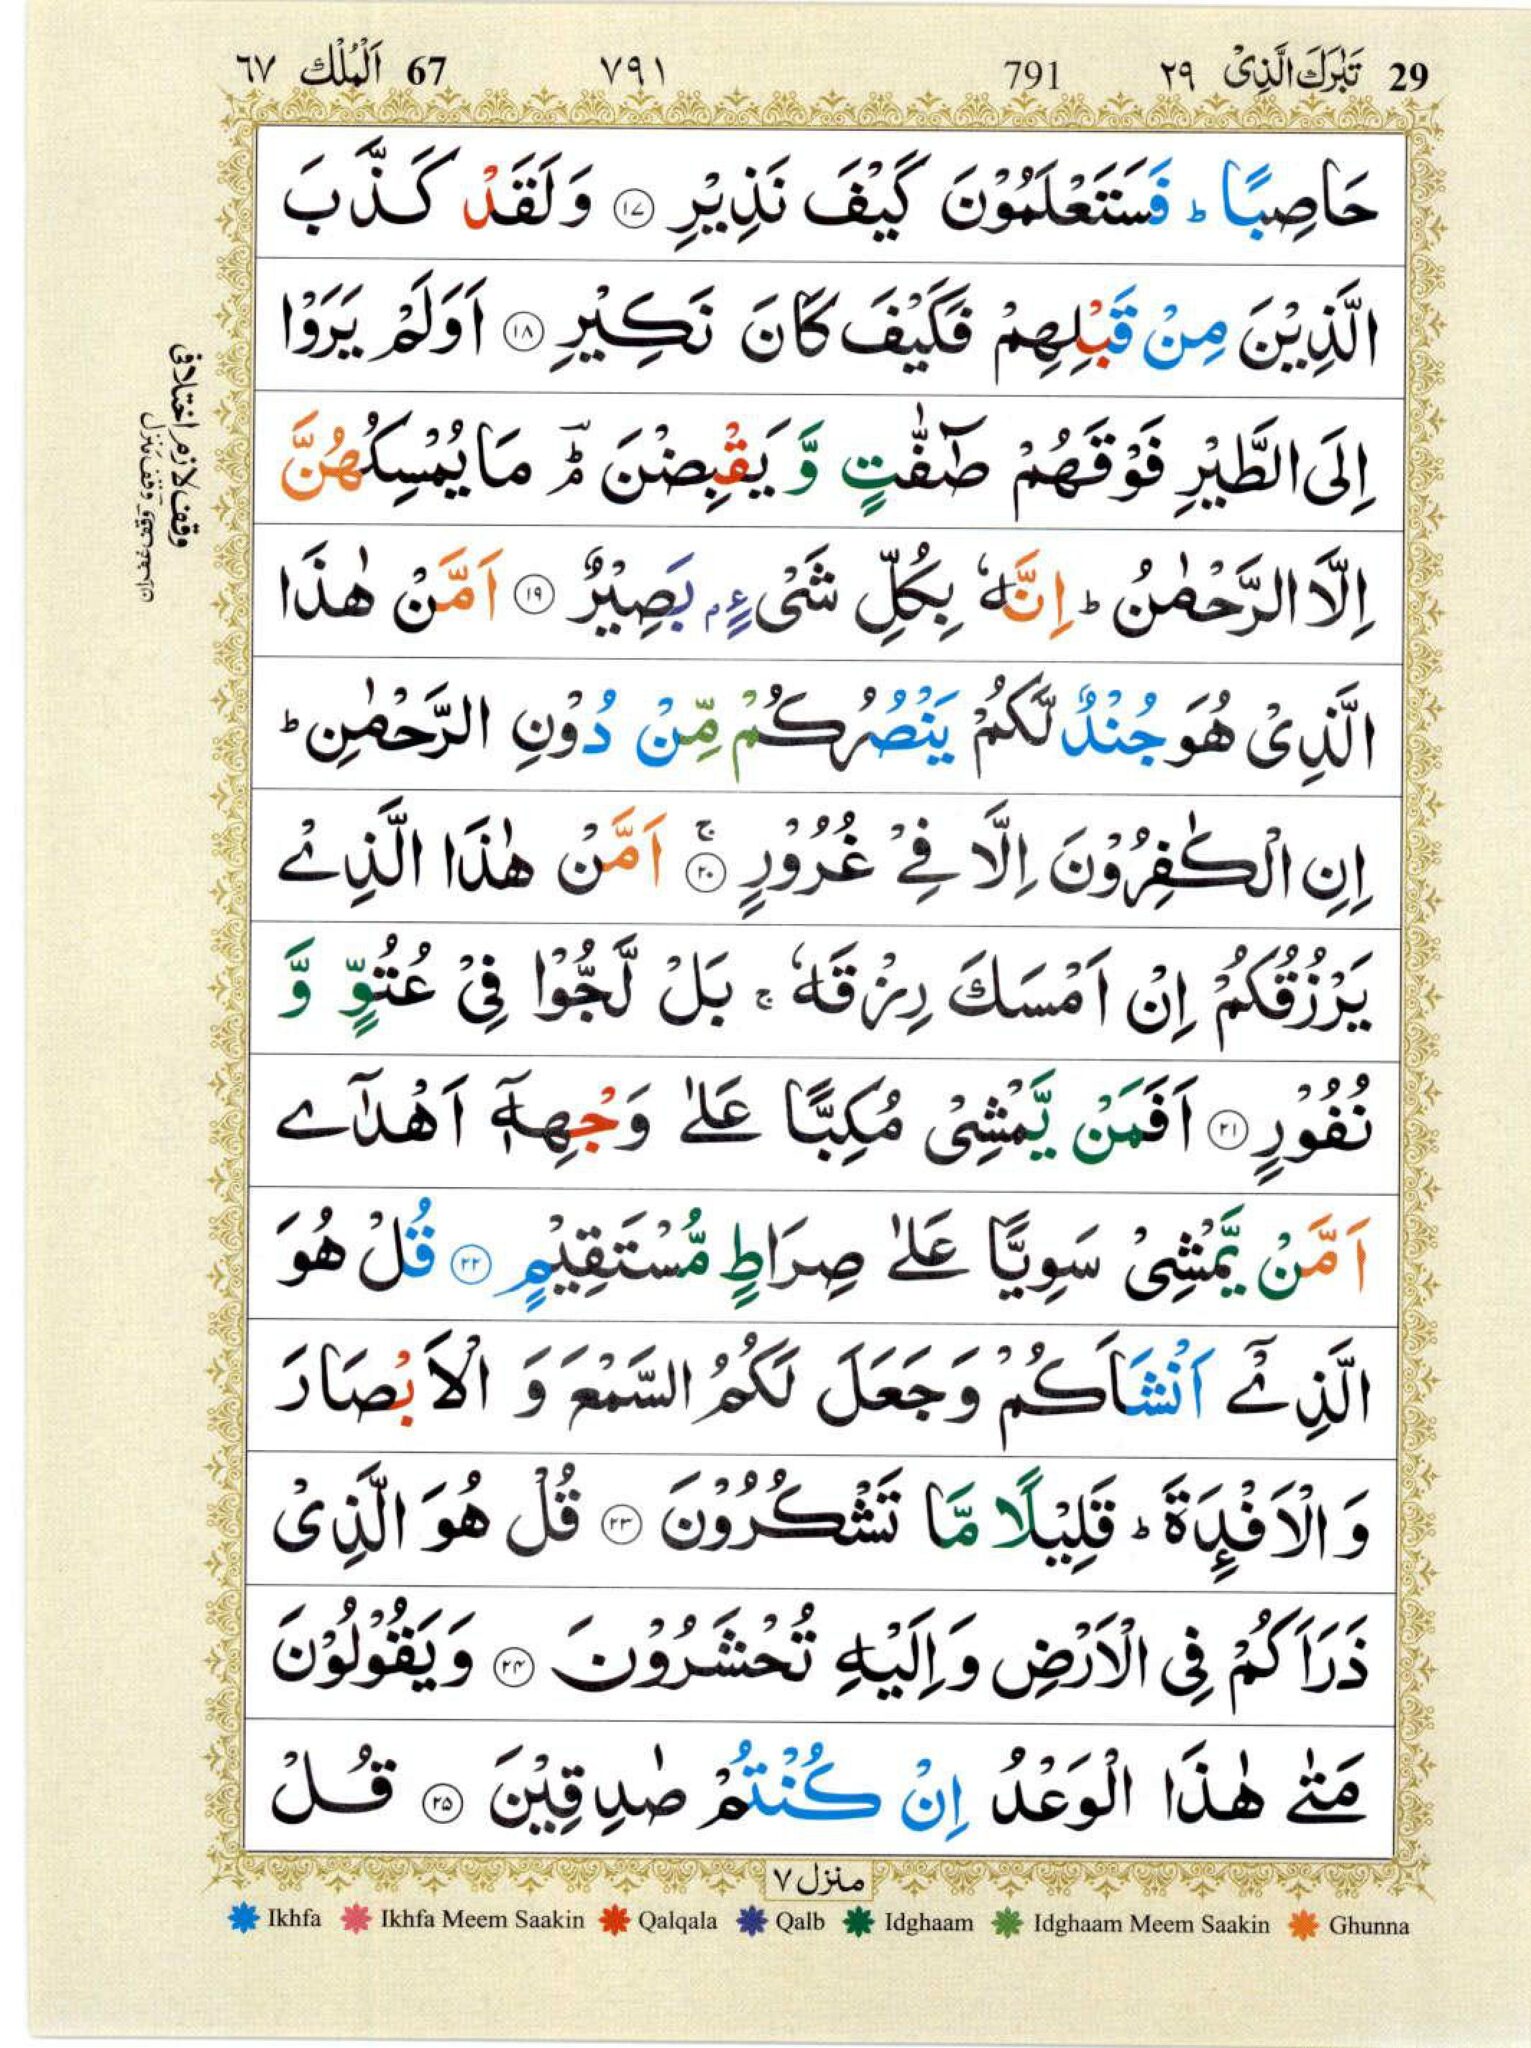 29 تَبٰرَكَ الَّذِیْ ٢٩ 791 ٧٩١ 67 اَلْمُلْك ٦٧
حَاصِبًا ؕ فَسَتَعْلَمُوْنَ كَیْفَ نَذِیْرِ ﴿١٧﴾ وَلَقَدْ كَذَّبَ
الَّذِیْنَ مِنْ قَبْلِهِمْ فَكَیْفَ كَانَ نَكِیْرِ ﴿١٨﴾ اَوَلَمْ یَرَوْا
اِلَی الطَّیْرِ فَوْقَهُمْ صٰٓفّٰتٍ وَّ یَقْبِضْنَ ؔؕۘ مَا یُمْسِكُهُنَّ
اِلَّا الرَّحْمٰنُ ؕ اِنَّهٗ بِكُلِّ شَیْءٍۭ بَصِیْرٌ ﴿١٩﴾ اَمَّنْ هٰذَا
الَّذِیْ هُوَ جُنْدٌ لَّكُمْ یَنْصُرُكُمْ مِّنْ دُوْنِ الرَّحْمٰنِ ؕ
اِنِ الْكٰفِرُوْنَ اِلَّا فِیْ غُرُوْرٍ ۚ ﴿٢٠﴾ اَمَّنْ هٰذَا الَّذِیْ
یَرْزُقُكُمْ اِنْ اَمْسَكَ رِزْقَهٗ ۚ بَلْ لَّجُّوْا فِیْ عُتُوٍّ وَّ
نُفُوْرٍ ﴿٢١﴾ اَفَمَنْ یَّمْشِیْ مُكِبًّا عَلٰی وَجْهِهٖۤ اَهْدٰۤی
اَمَّنْ یَّمْشِیْ سَوِیًّا عَلٰی صِرَاطٍ مُّسْتَقِیْمٍ ﴿٢٢﴾ قُلْ هُوَ
الَّذِیْۤ اَنْشَاَكُمْ وَجَعَلَ لَكُمُ السَّمْعَ وَ الْاَبْصَارَ
وَالْاَفْـِٕدَةَ ؕ قَلِیْلًا مَّا تَشْكُرُوْنَ ﴿٢٣﴾ قُلْ هُوَ الَّذِیْ
ذَرَاَكُمْ فِی الْاَرْضِ وَاِلَیْهِ تُحْشَرُوْنَ ﴿٢٤﴾ وَیَقُوْلُوْنَ
مَتٰی هٰذَا الْوَعْدُ اِنْ كُنْتُمْ صٰدِقِیْنَ ﴿٢٥﴾ قُلْ
وقف لازم اختلافی
وَقف مَنزل وَقف غفران
منزل ٧
Ikhfa Ikhfa Meem Saakin Qalqala Qalb Idghaam Idghaam Meem Saakin Ghunna